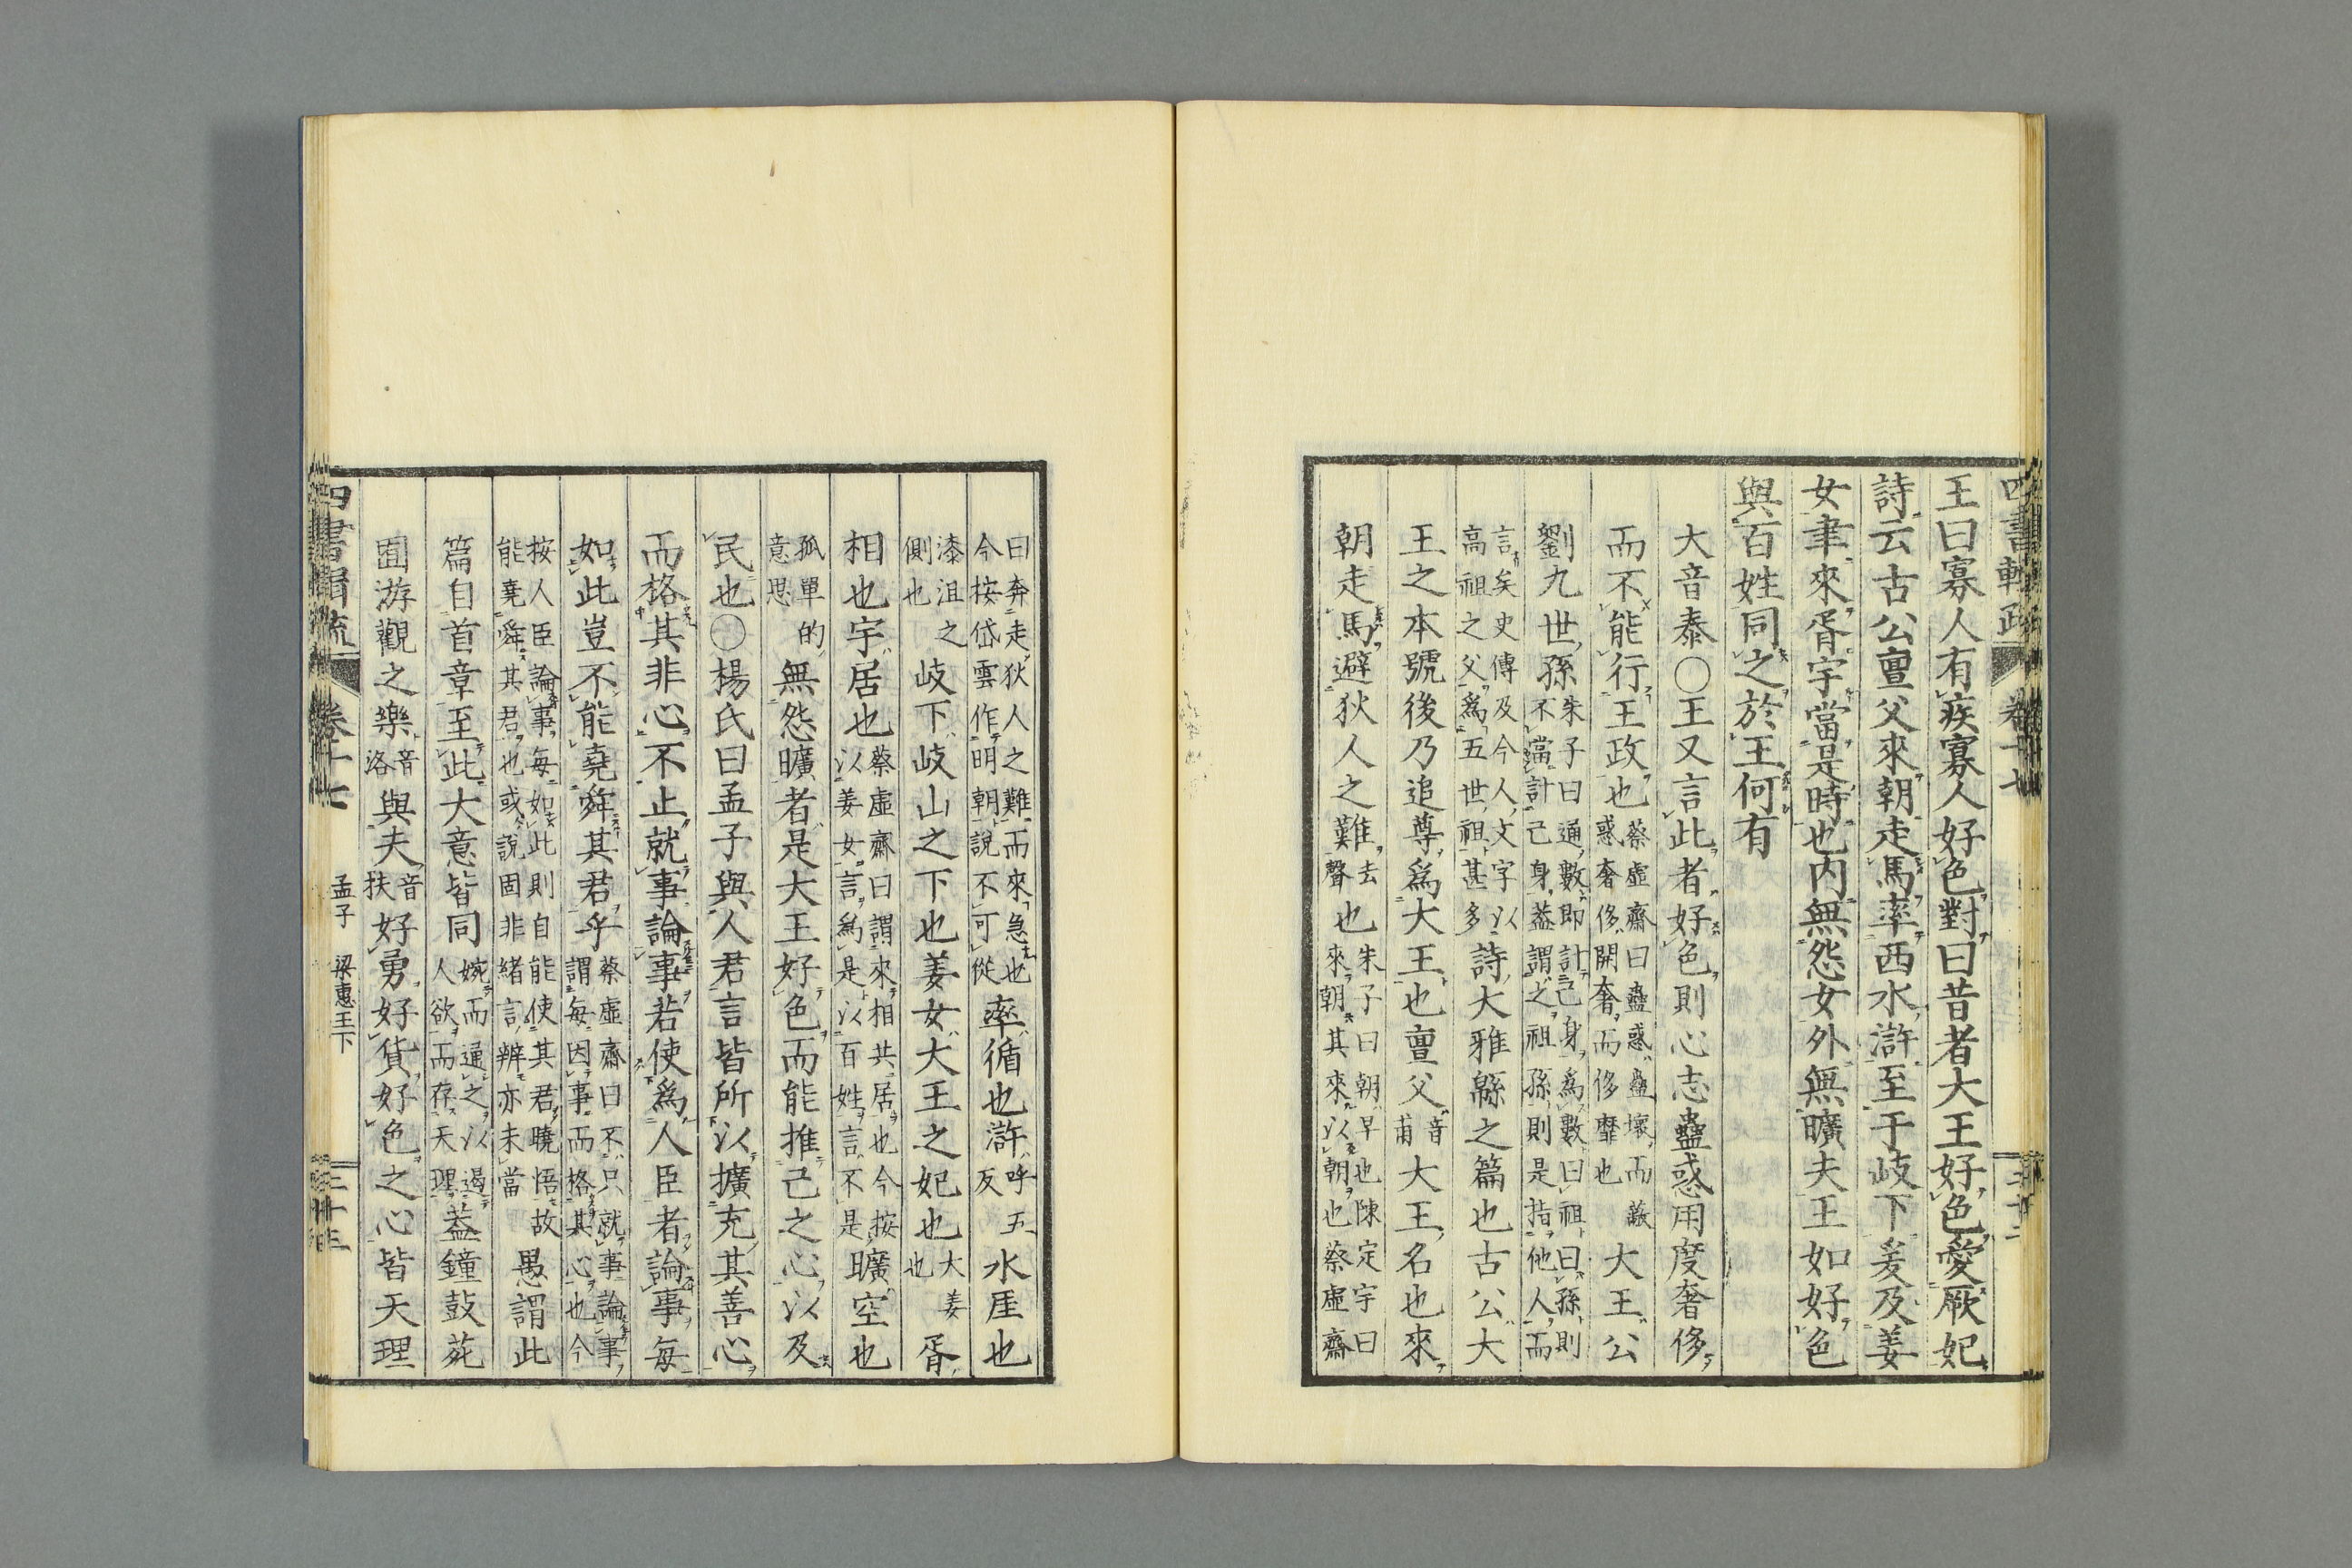 王曰寡人有疾寡人好色對曰昔者大王好色愛厥妃
詩云古公亶父來朝走馬率西水滸至于岐下爰及姜
女聿來胥宇當是時也內無怨女外無曠夫王如好色
與百姓同之於王何有
大音泰〇王又言此者好色則心志蠱惑用度奢侈
而不能行王政也蔡虛齋曰蠱惑蠱壞而蔽
惑奢侈開奢而侈靡也大王公
劉九世孫朱子曰通數即計己身爲數曰祖曰孫則
不當計己身蓋謂之祖孫則是指他人而
言矣史傳及今人文字以
高祖之父爲五世祖甚多詩大雅緜之篇也古公大
王之本號後乃追尊爲大王也亶父音
甫大王名也來
朝走馬避狄人之難去
聲也朱子曰朝早也陳定宇曰
來朝其來以朝也蔡虛齋
曰奔走狄人之難而來急也
今按岱雲作明朝說不可從率循也滸呼五
反水厓也
漆沮之
側也岐下岐山之下也姜女大王之妃也大姜
也胥
相也宇居也蔡虛齋曰謂來相其居也今按
以姜女言爲是以百姓言不是曠空也
孤單的
意思無怨曠者是大王好色而能推己之心以及
民也〇楊氏曰孟子與人君言皆所以擴充其善心
而格其非心不止就事論事若使爲人臣者論事每
如此豈不能堯舜其君乎蔡虛齋曰不只就事論事
謂每因事而格其心也今
按人臣論事每如此則自能使其君曉悟故
能堯舜其君也或說固非緒言辨亦未當愚謂此
篇自首章至此大意皆同婉而通之以遏
人欲而存天理蓋鐘鼓苑
囿游觀之樂音
洛與夫音
扶好勇好貨好色之心皆天理
四書輯疏
卷十七
孟子
梁惠王下
三十三